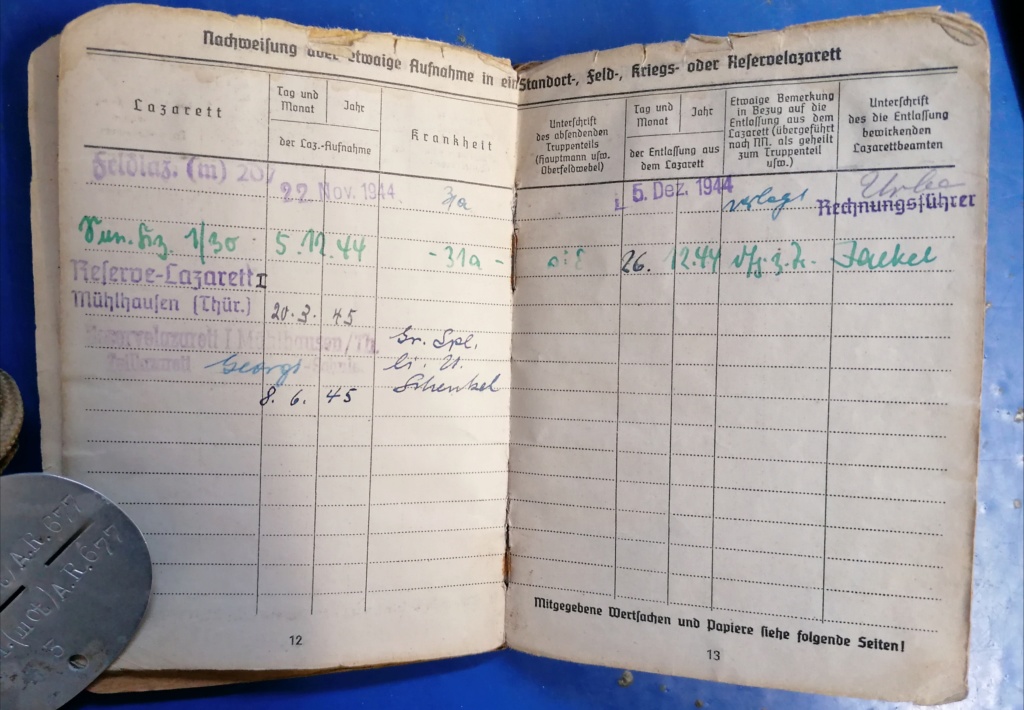 Nachweisung über etwaige Aufnahme in ein Standort-, Feld-, Kriegs- oder Reservelazarett
Lazarett
Tag und Monat
Jahr
der Laz.-Aufnahme
Krankheit
Unterschrift
des absendenden
Truppenteils
(Hauptmann usw.
Oberfeldwebel)
Tag und
Monat
Jahr
der Entlassung aus
dem Lazarett
Etwaige Bemerkung
in Bezug auf die
Entlassung aus dem
Lazarett (übergeführt
nach NN. als geheilt
zum Truppenteil
usw.)
Unterschrift
des die Entlassung
bewirkenden
Lazarettbeamten
Feldlaz. (m) 207
22. Nov. 1944
5. Dez. 1944
verlegt
Rechnungsführer
1/30
5. 12. 44
- 31a -
26. 12.44
Reserve-Lazarett I
Mühlhausen (Thür.)
20. 3. 45
Reservelazarett I Mühlhausen/Th.
Teillazarett Georgi
Gr. Spl.
li. U.
Schenkel
8. 6. 45
12
Mitgegebene Wertsachen und Papiere siehe folgende Seiten!
13
A.R.677
(mot) A.R.677